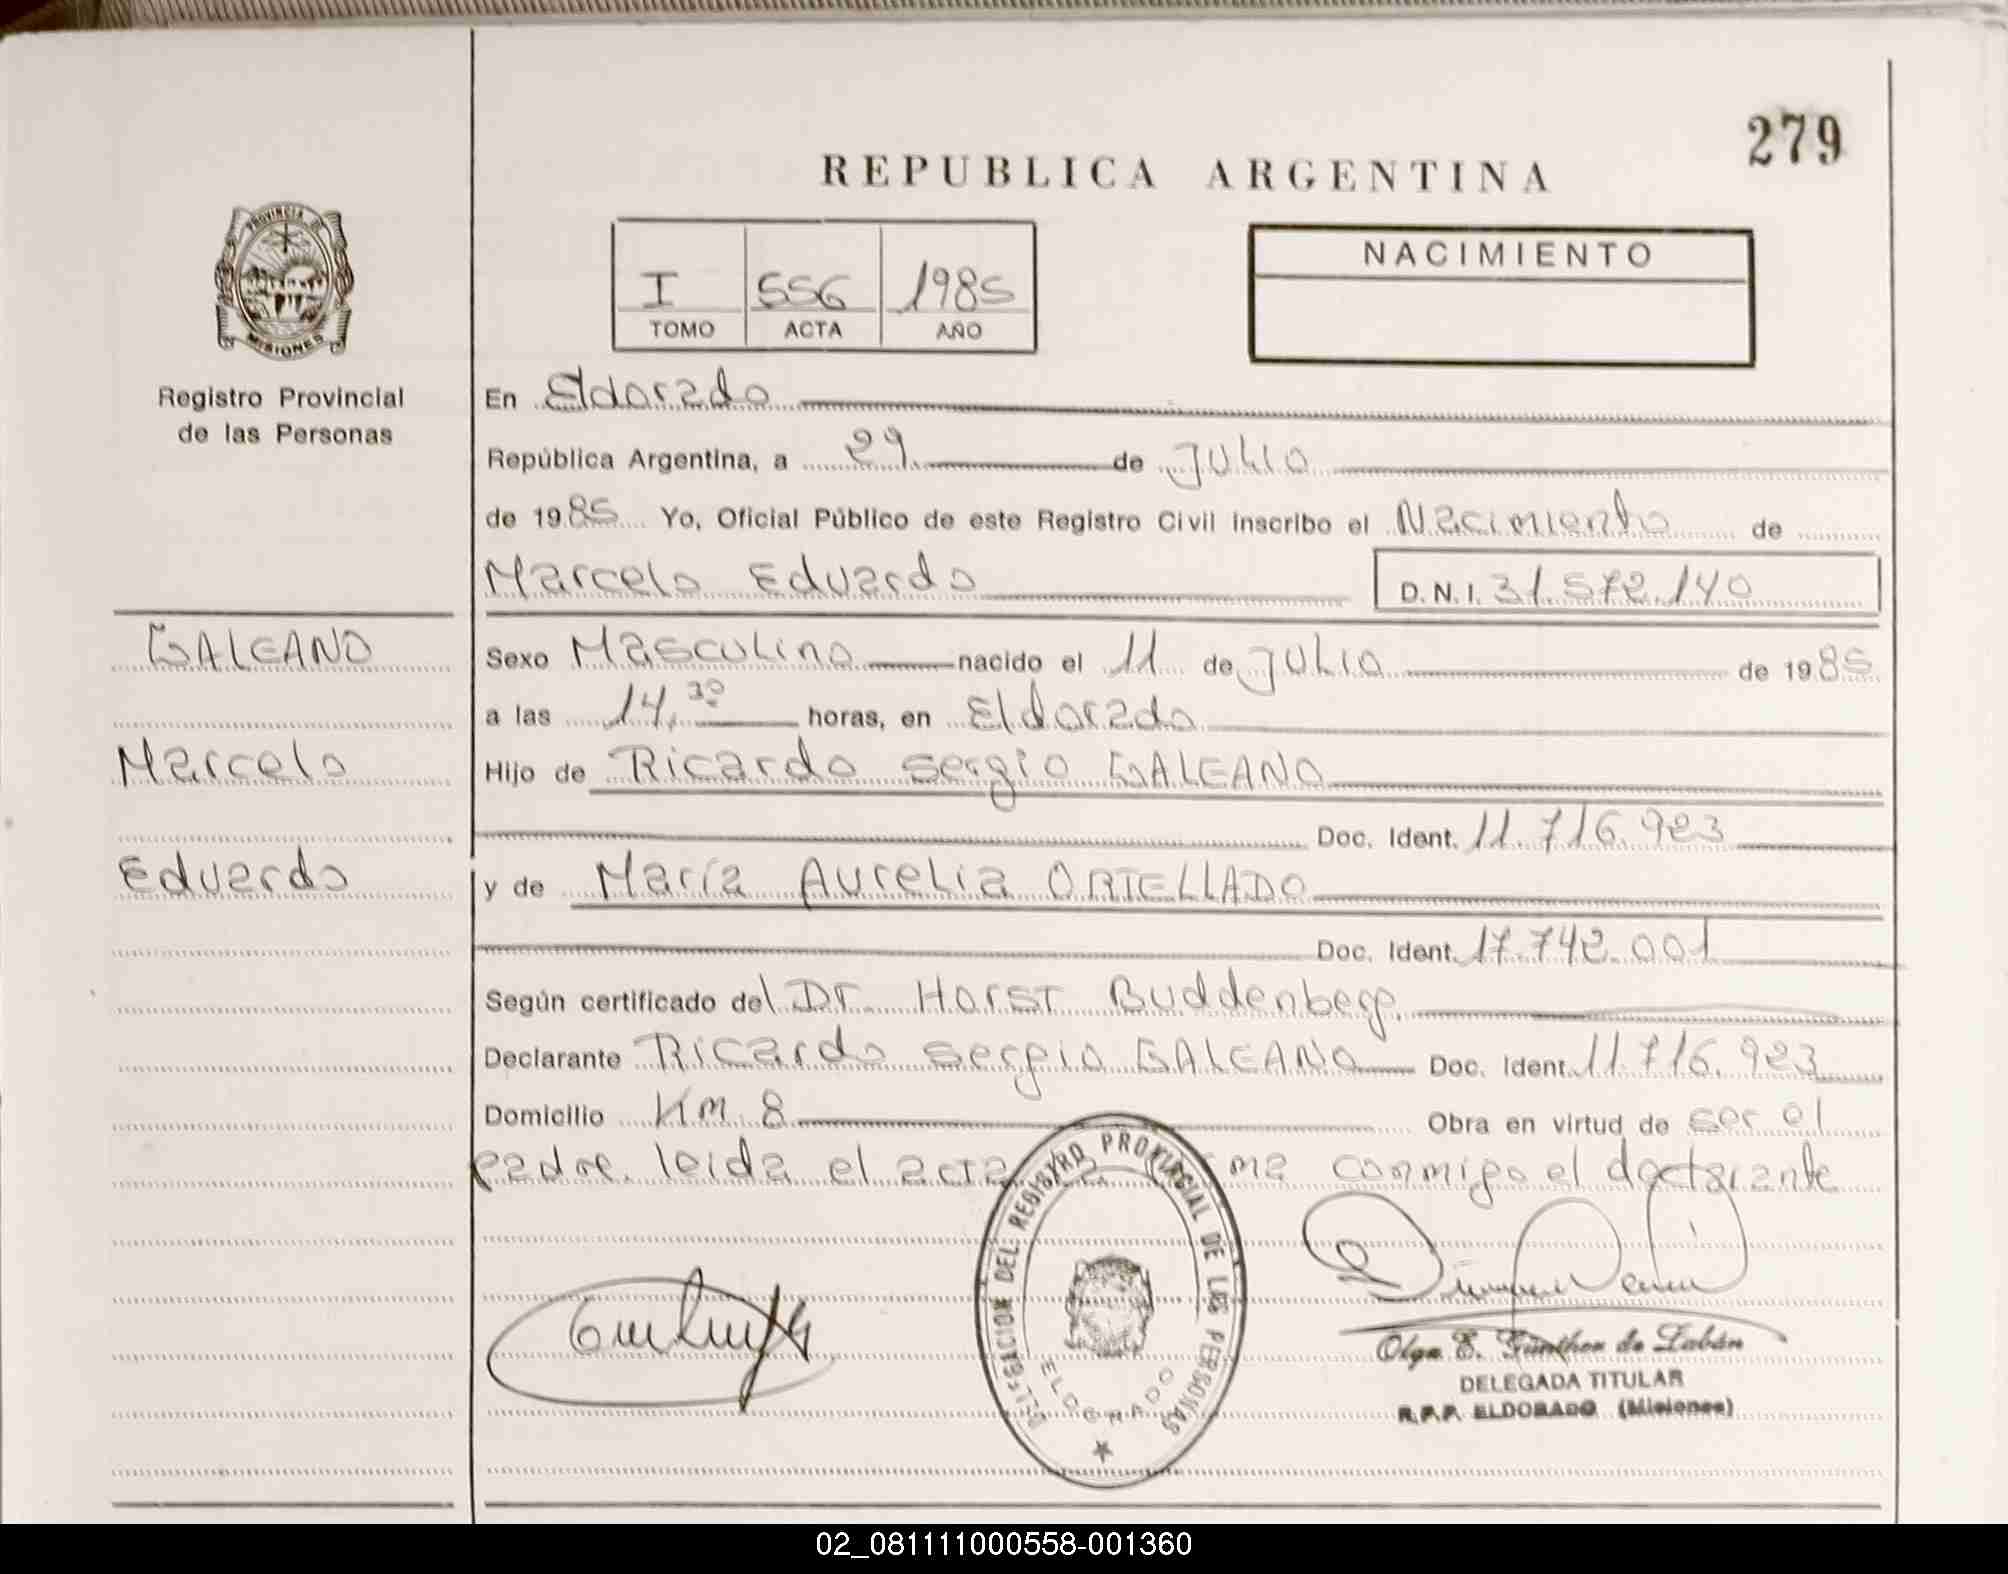 279
REPUBLICA ARGENTINA
PROVINCIA DE
MISIONES
Registro Provincial
de las Personas
I 556 1985
TOMO ACTA AÑO
NACIMIENTO
En Eldorado
República Argentina, a 29 de JULIO
de 1985 Yo, Oficial Público de este Registro Civil inscribo el Nacimiento de
Marcelo Eduardo D.N.I. 31.572.140
GALEANO
Marcelo
Eduardo
Sexo Masculino nacido el 11 de JULIO de 1985
a las 14,30 horas, en Eldorado
Hijo de Ricardo Sergio GALEANO
Doc. Ident. 11.716.923
y de María Aurelia ORTELLADO
Doc. Ident. 17.742.001
Según certificado del Dr. Horst Buddenberg.
Declarante Ricardo Sergio GALEANO Doc. Ident. 11.716.923
Domicilio Km. 8 Obra en virtud de ser el
padre. leida el acta la firma conmigo el declarante
DELEGACION DEL REGISTRO PROVINCIAL DE LAS PERSONAS
ELDORADO
Olga E. Günther de Labán
DELEGADA TITULAR
R.P.P. ELDORADO (Misiones)
02_081111000558-001360